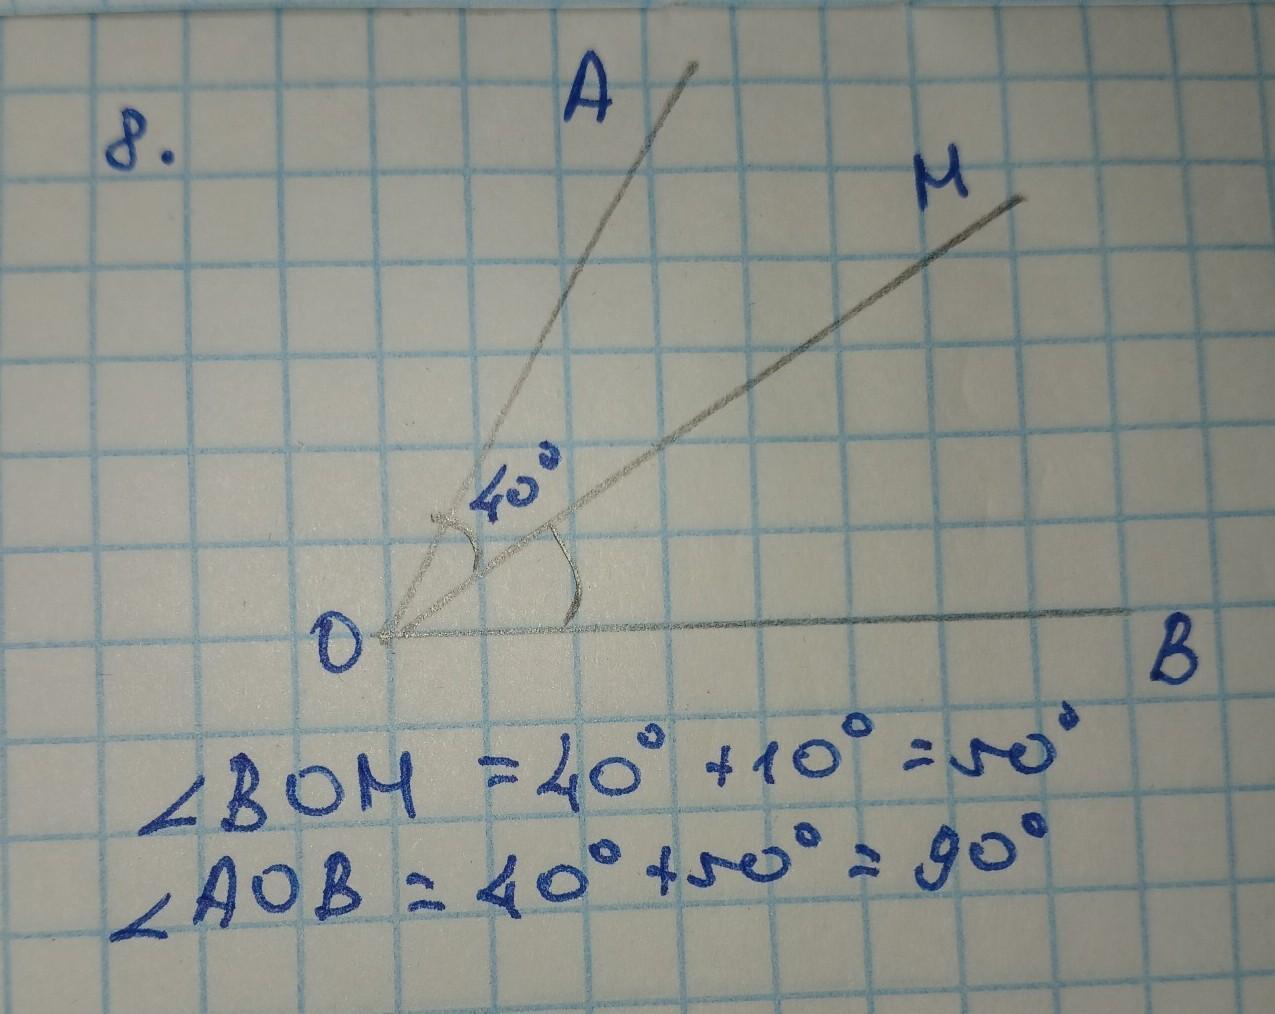 8.
A
M
40°
O
B
∠BOM = 40° + 10° = 50°
∠AOB = 40° + 50° = 90°